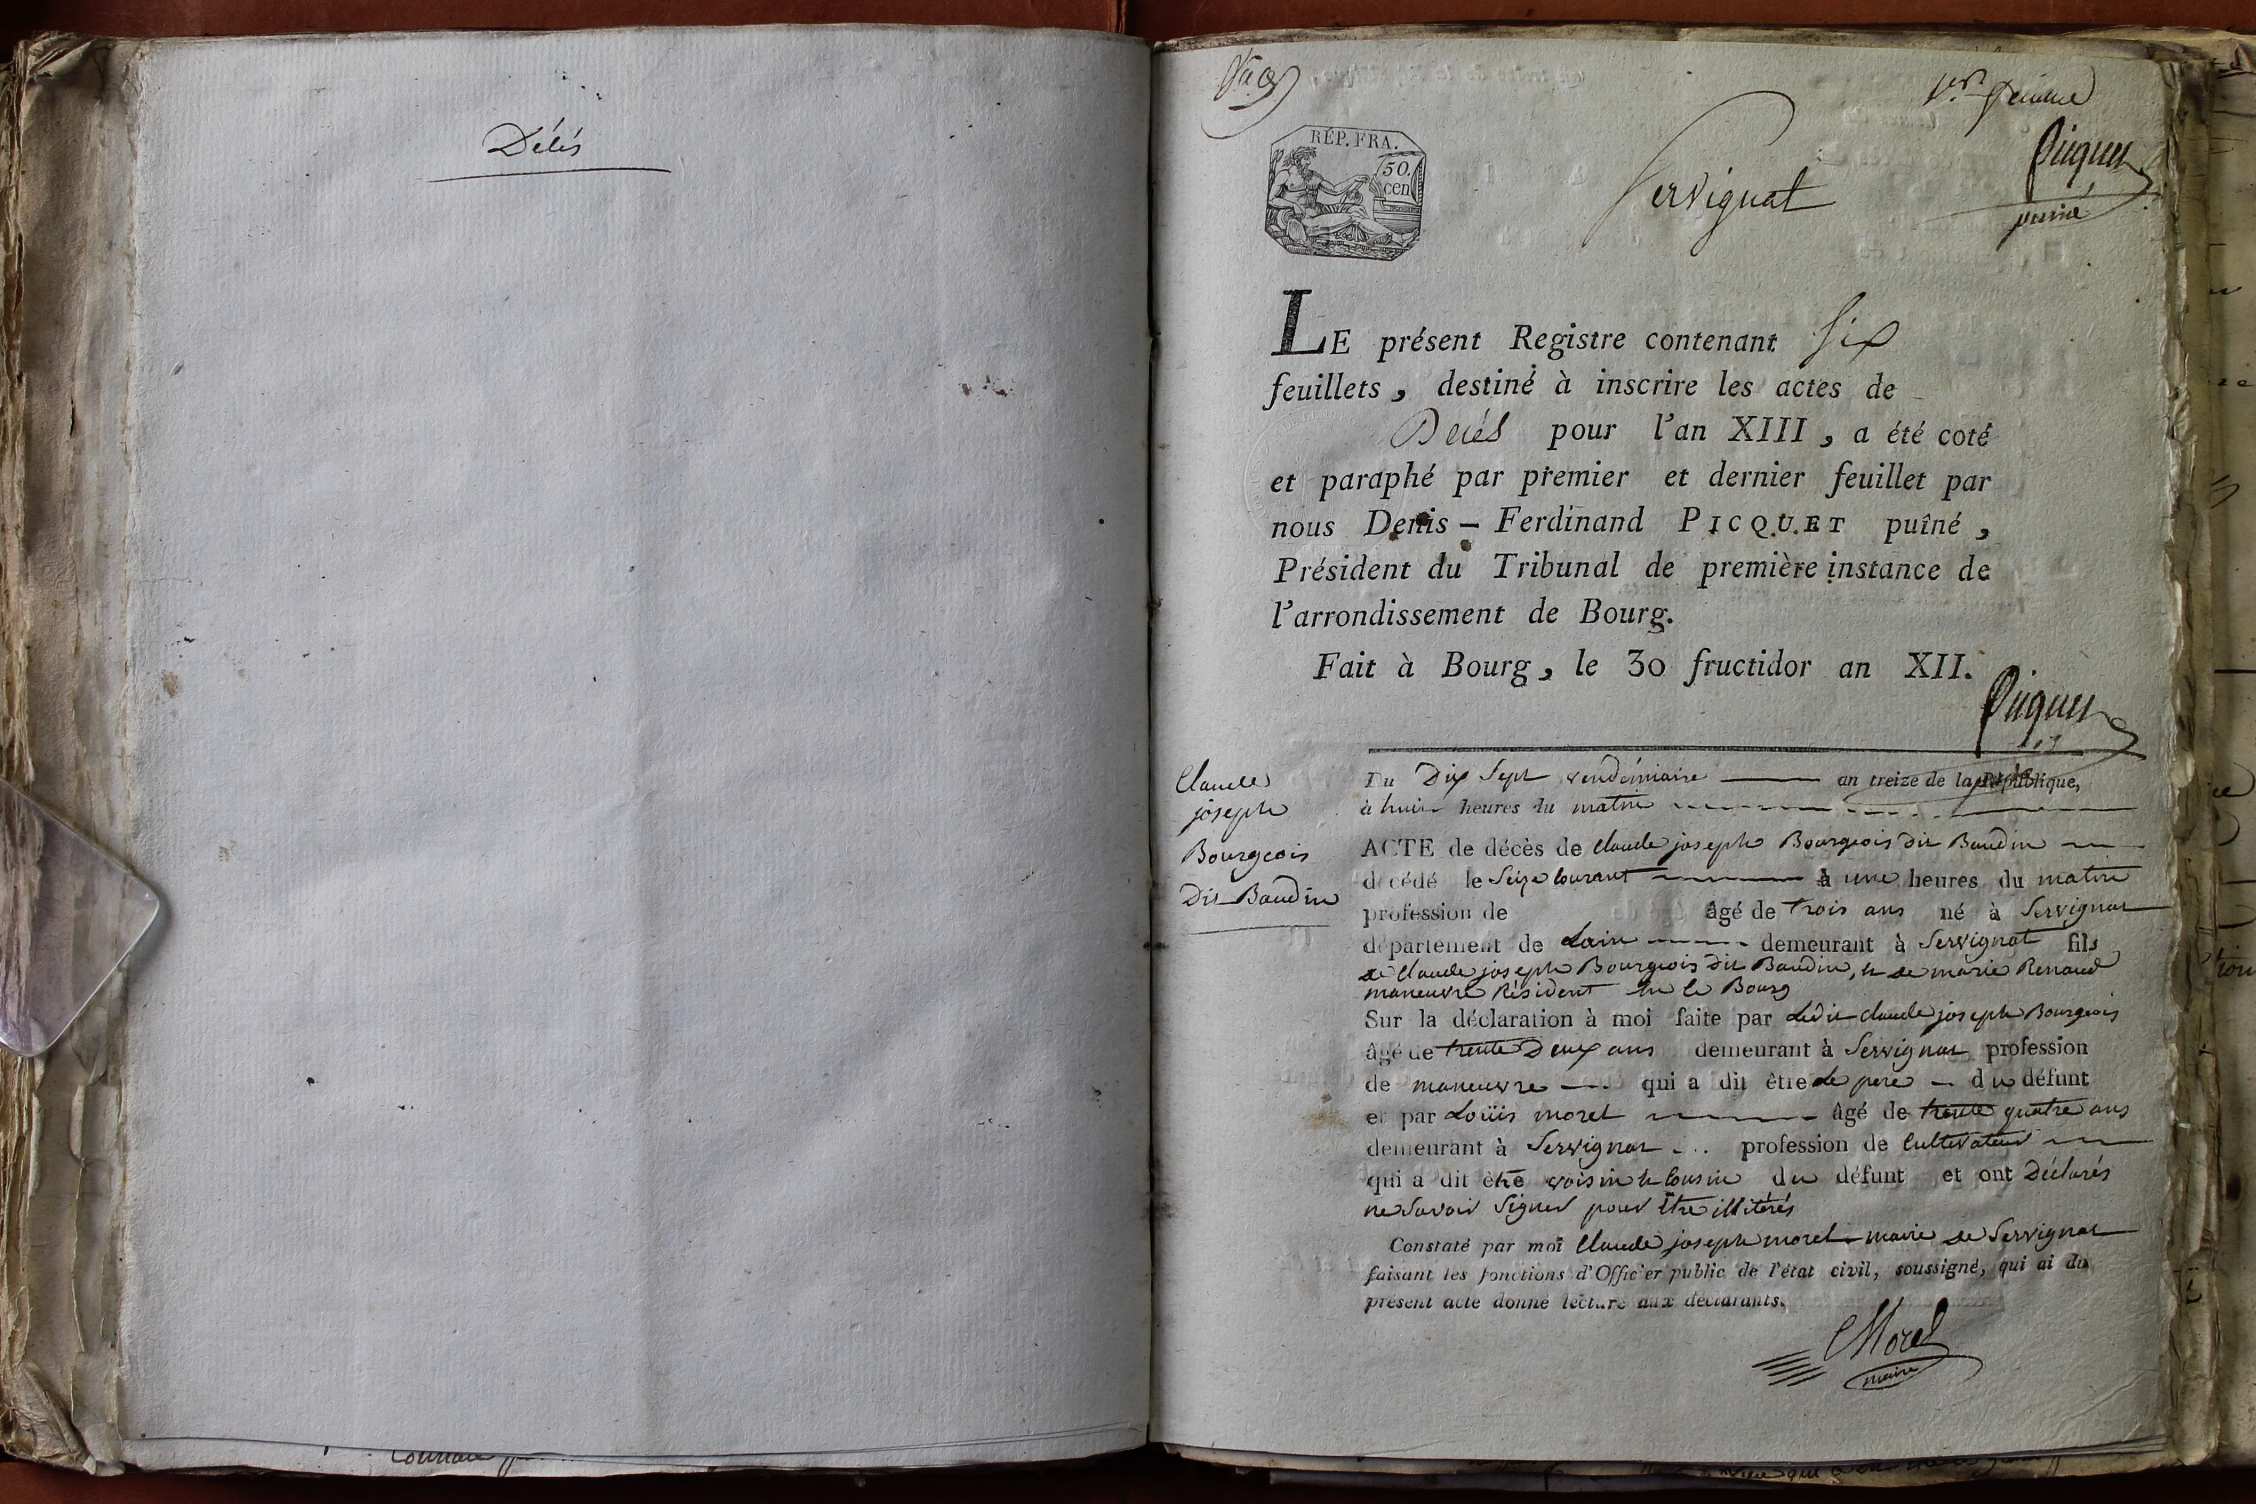 Décés
RÉP. FRA.
50.
cen
Servignat
Picquet
puiné
LE présent Registre contenant Six
feuillets, destiné à inscrire les actes de
Decés pour l'an XIII, a été coté
et paraphé par premier et dernier feuillet par
nous Denis – Ferdinand PICQUET puîné,
Président du Tribunal de première instance de
l'arrondissement de Bourg.
Fait à Bourg, le 30 fructidor an XII.
Picquet
Claude
joseph
Bourgeois
Dit Baudin
Du Dix Sept vendémiaire an treize de la République,
à huit heures du matin
ACTE de décès de Claude joseph Bourgeois dit Baudin
décédé le Seize Courant à une heures du matin
profession de âgé de trois ans né à Servignat
département de Lain demeurant à Servignat fils
de Claude joseph Bourgeois dit Baudin, et de marie Renaud
maneuvre Résident en le Bourg
Sur la déclaration à moi faite par Ledit Claude joseph Bourgeois
âgé de trente Deux ans demeurant à Servignat profession
de maneuvre qui a dit être le pere du défunt
et par Loüis morel âgé de trente quatre ans
demeurant à Servignat profession de Cultivateur
qui a dit être voisin et Cousin du défunt et ont Déclarés
ne Savoir Signer pour être illitérés
Constaté par moi Claude joseph morel maire de Servignat
faisant les fonctions d'Officier public de l'état civil, soussigné, qui ai du
présent acte donné lecture aux déclarants.
CMorel
maire